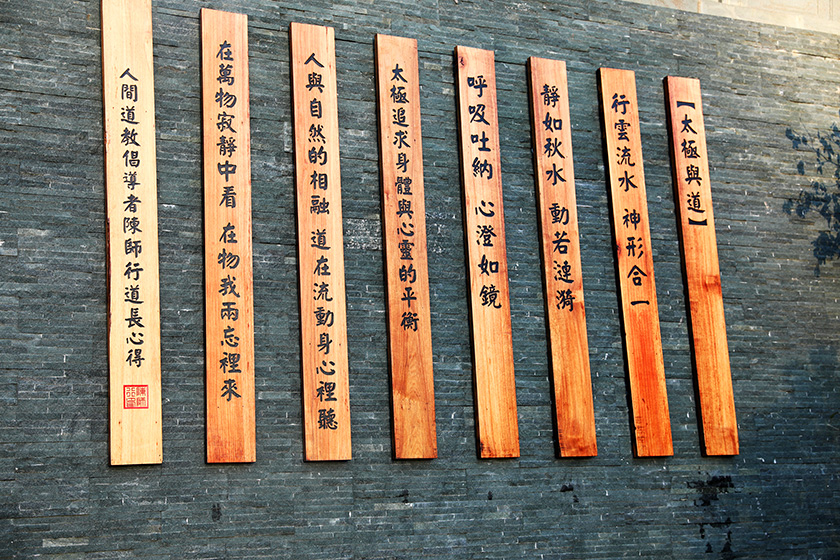 【太極與道】
行雲流水 神形合一
靜如秋水 動若漣漪
呼吸吐納 心澄如鏡
太極追求身體與心靈的平衡
人與自然的相融 道在流動身心裡聽
在萬物寂靜中看 在物我兩忘裡來
人間道教倡導者陳師行道長心得